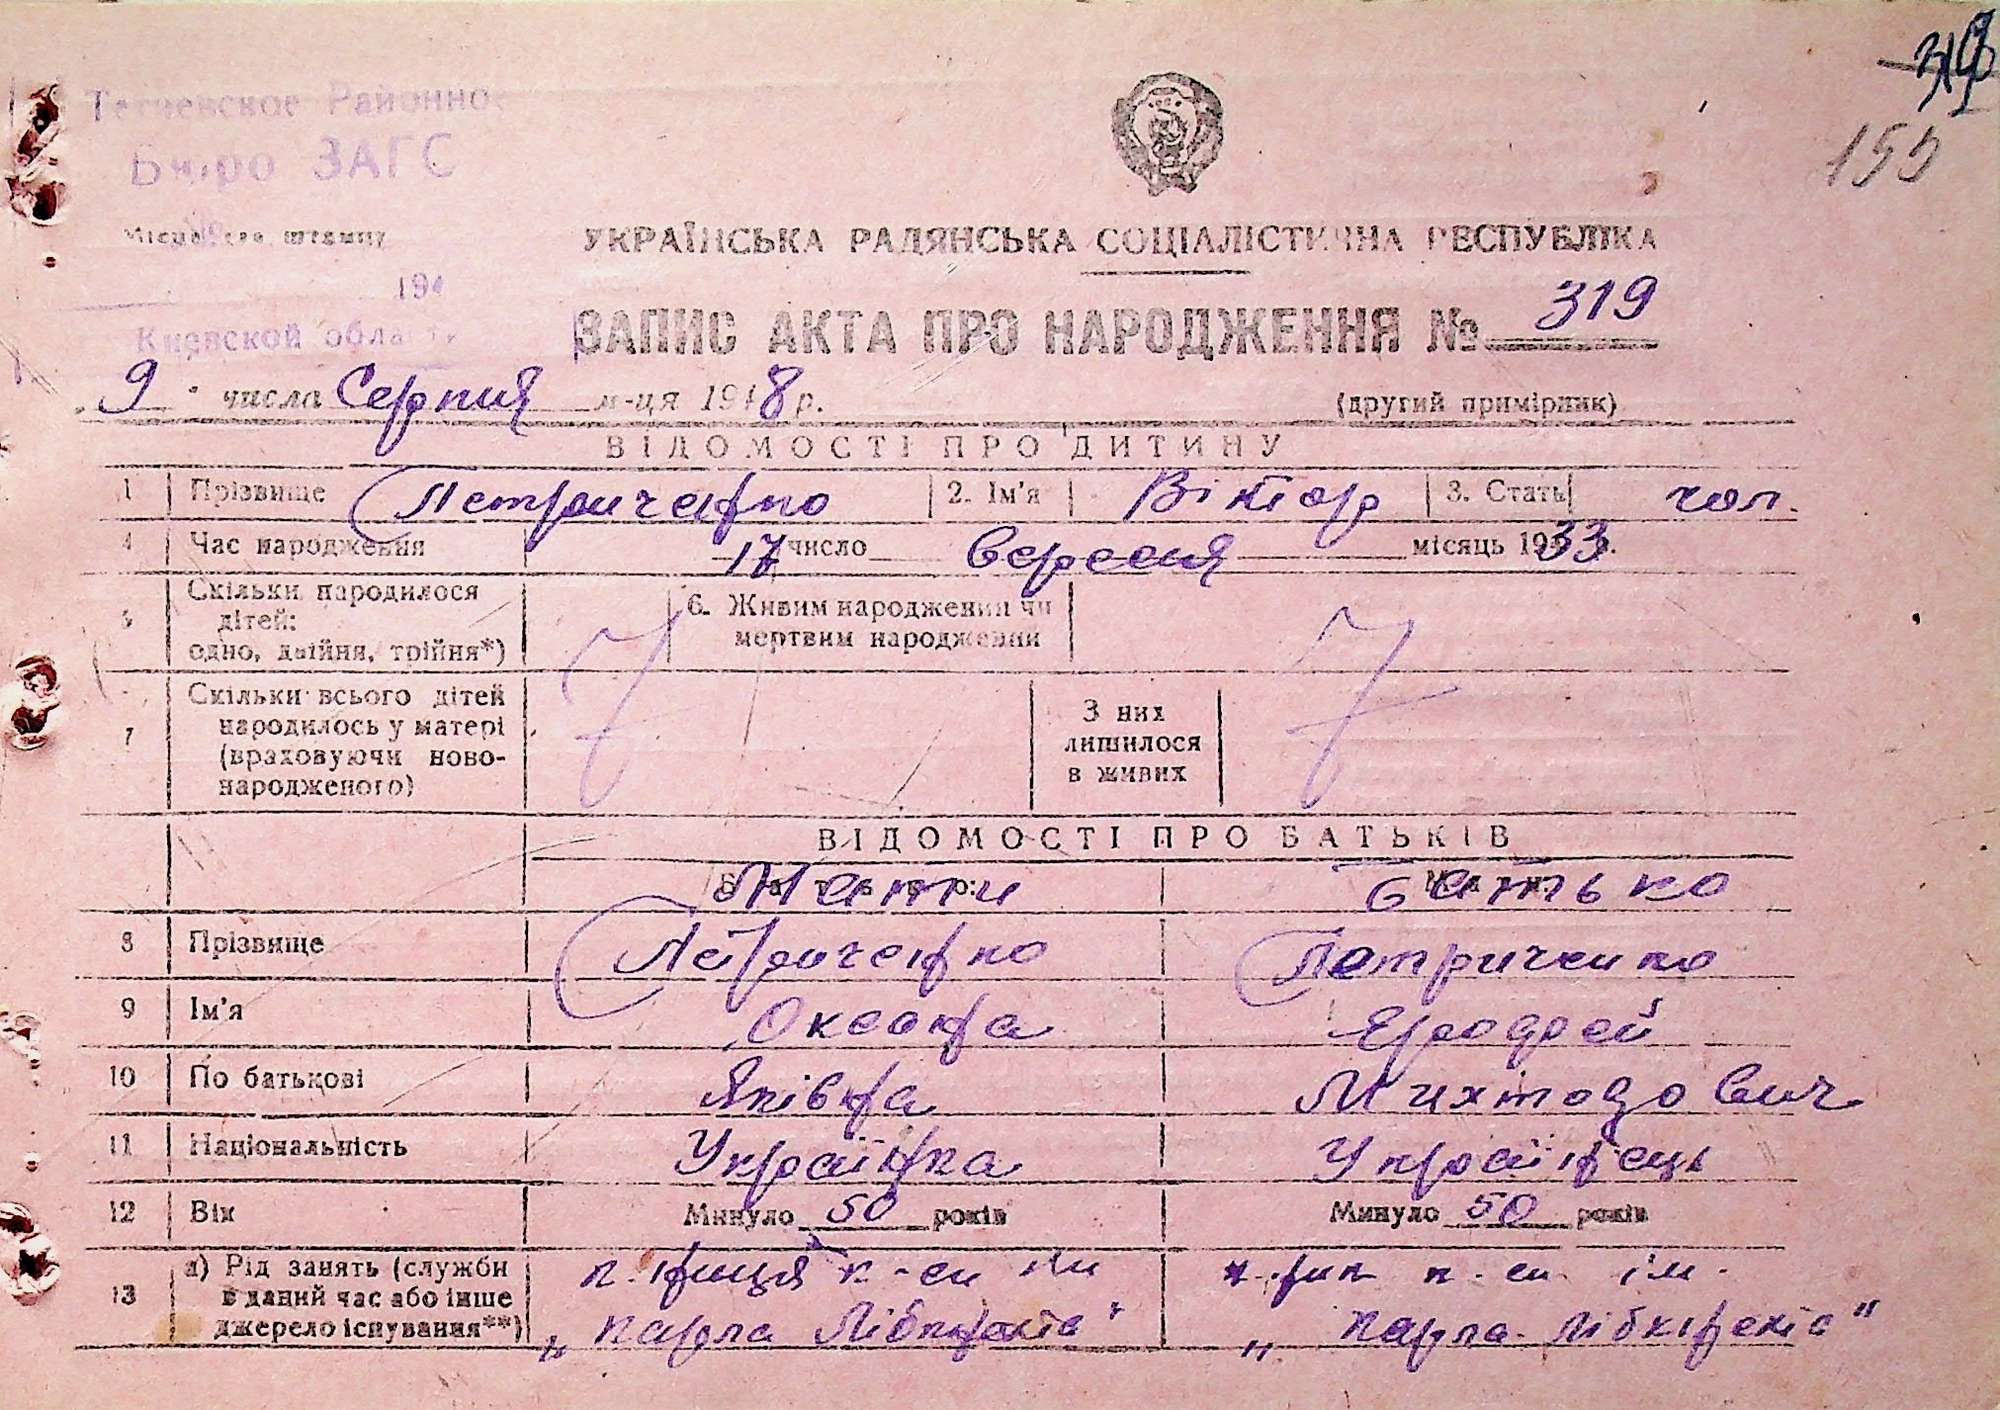 319
155
Тетиевское Районное
Бюро ЗАГС
Місце для штампу
194
Киевской области
УКРАЇНСЬКА РАДЯНСЬКА СОЦІАЛІСТИЧНА РЕСПУБЛІКА
ЗАПИС АКТА ПРО НАРОДЖЕННЯ № 319
„ 9 " числа Серпня м-ця 1948 р. (другий примірник)
ВІДОМОСТІ ПРО ДИТИНУ
1 Прізвище Петриченко 2. Ім'я Віктор 3. Стать чол.
4 Час народження 17 число вересня місяць 1933 р.
5 Скільки народилося дітей: одно, двійня, трійня*)
6. Живим народжений чи мертвим народжений
7 Скільки всього дітей народилось у матері (враховуючи новонародженого)
З них лишилося в живих
ВІДОМОСТІ ПРО БАТЬКІВ
Мати Батько
8 Прізвище Петриченко Петриченко
9 Ім'я Оксана
10 По батькові Яківна
11 Національність Українка Українець
12 Вік Минуло 50 років Минуло 50 років
13 а) Рід занять (служби в даний час або інше джерело існування**)
к-ниця к-сп ім к-ник к-сп ім.
„Карла Лібкнехта" „Карла Лібкнехта"